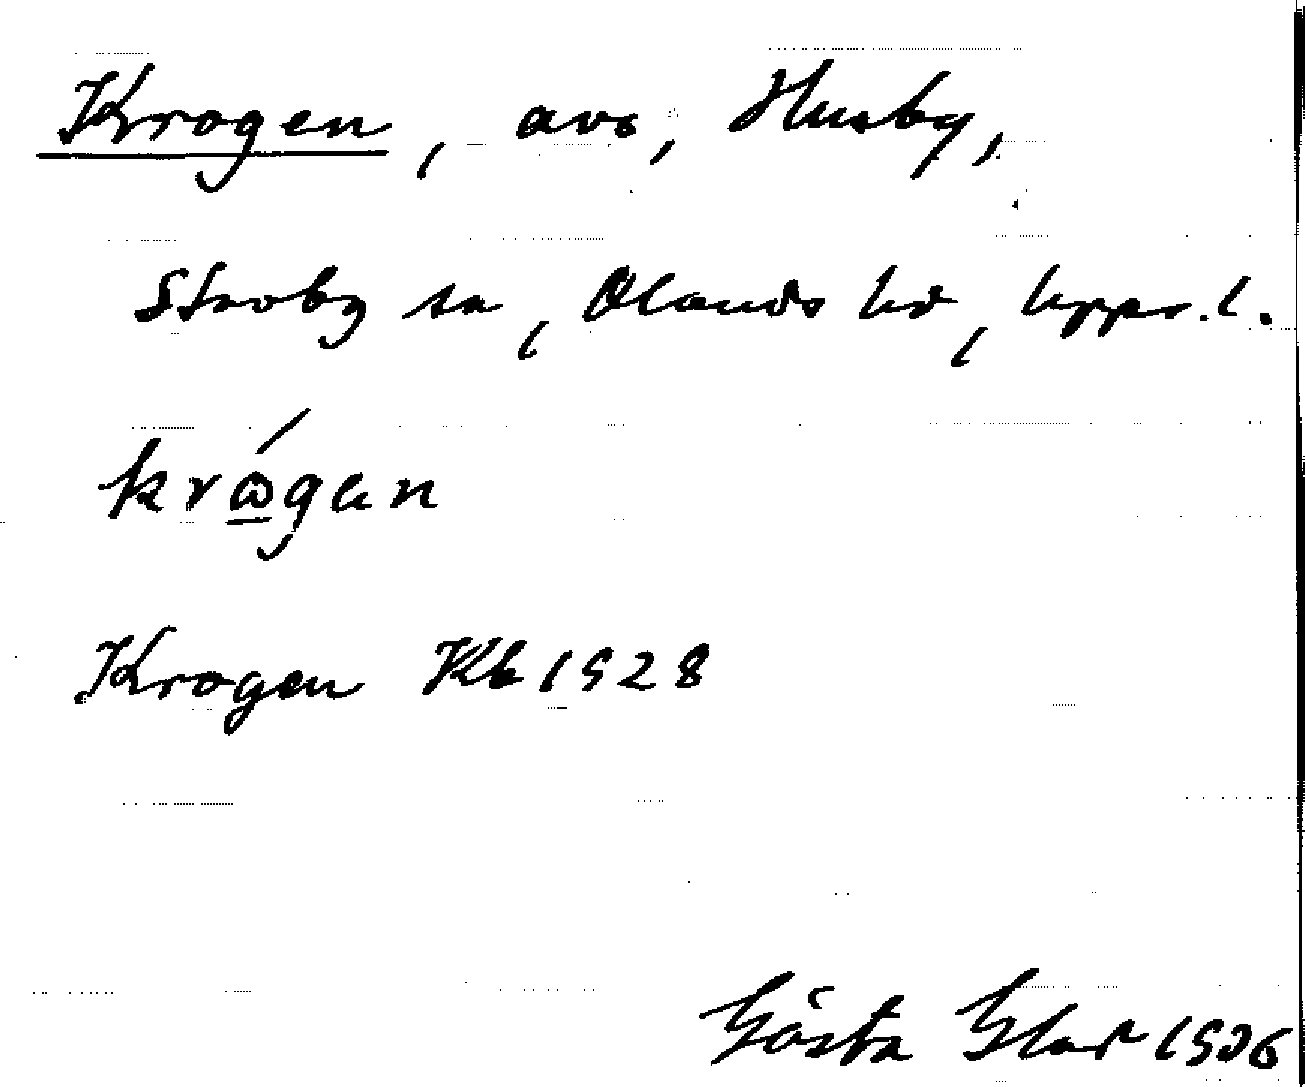 Krogen, avs, Husby,
Skoby sn, Olands hd, Upps. l.
krώ̲gan
Krogen Kb 1928
Gösta Glad 1936